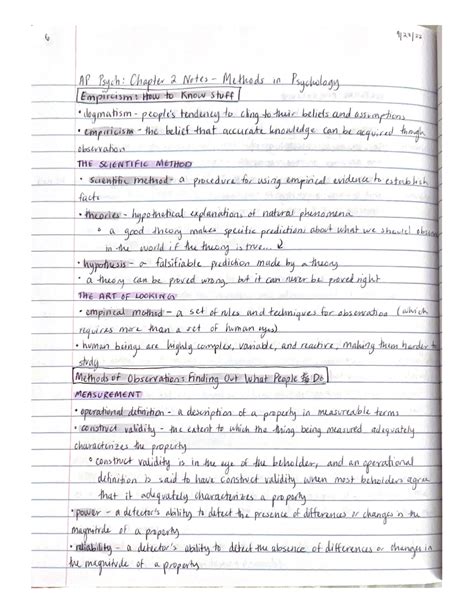 6
9/23/22
AP Psych: Chapter 2 Notes - Methods in Psychology
Empiricism: How to Know Stuff
• dogmatism - people's tendency to cling to their beliefs and assumptions
• empiricism - the belief that accurate knowledge can be acquired though
observation
THE SCIENTIFIC METHOD
• scientific method - a procedure for using empirical evidence to establish
facts
• theories - hypothetical explanations of natural phenomena
◦ a good theory makes specific predictions about what we should observe
in the world if the theory is true... ↓
• hypothesis - a falsifiable prediction made by a theory
◦ a theory can be proved wrong but it can never be proved right
THE ART OF LOOKING
• empirical method - a set of rules and techniques for observation (which
requires more than a set of human eyes)
• human beings are highly complex, variable, and reactive, making them harder to
study
Methods of Observations: Finding Out What People Do
MEASUREMENT
• operational definition - a description of a property in measureable terms
• construct validity - the extent to which the thing being measured adequately
characterizes the property
◦ construct validity is in the eye of the beholder, and an operational
definition is said to have construct validity when most beholders agree
that it adequately characterizes a property
• power - a detector's ability to detect the presence of differences or changes in the
magnitude of a property
• reliability - a detector's ability to detect the absence of differences or changes in
the magnitude of a property